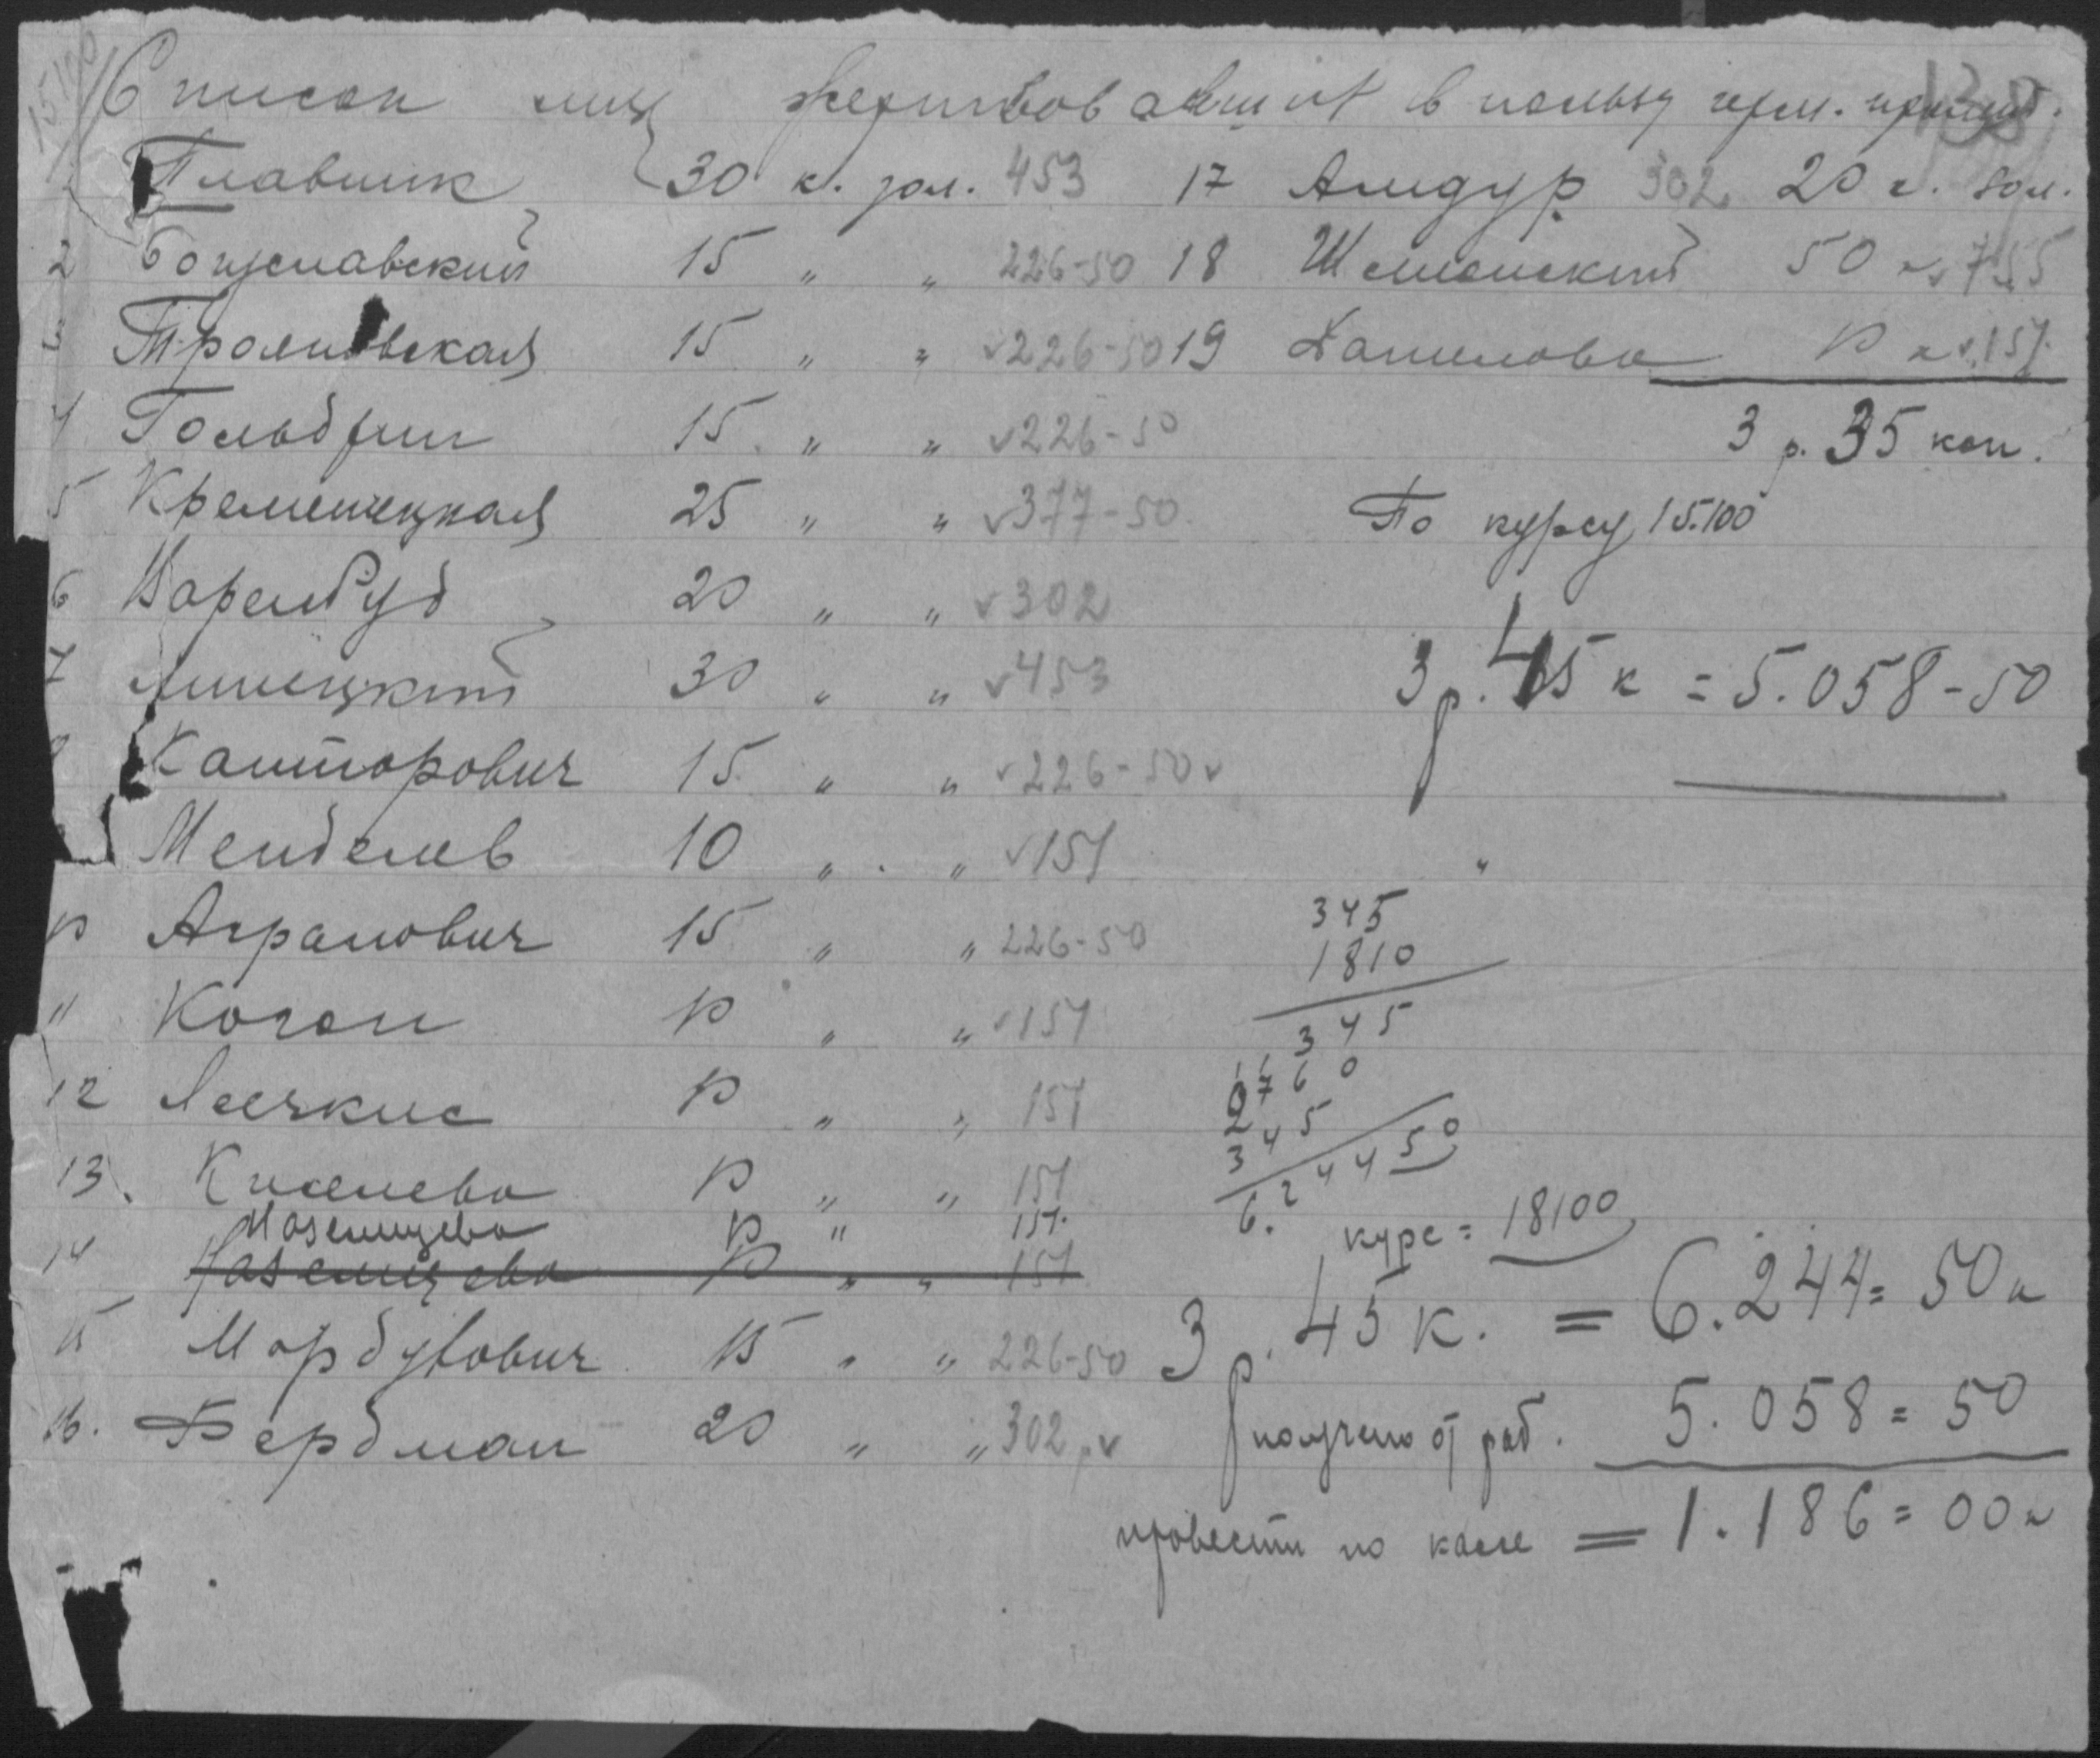 Список лиц жертвовавших в пользу герм. пролет.
Плавник 30 к. зол. 453
2 Богуславский 15 " " 226-50
Трояновская 15 " " v 226-50
4 Гольдфин 15 " " v 226-50
5 Кременецкая 25 " " v 377-50
6 20 " " v 302
7 Линецкий 30 " " v 453
8 Канторович 15 " " v 226-50 v
Менделев 10 " " v 151
10 Агранович 15 " " 226-50
11 Коган 10 " " v 151
12 10 " " 151
13. Киселева 10 " " 151
10 " 151.
14 10 " " 151
15 Мордухович 15 " " 226-50
16. Фердман 20 " " 302 v
17 Амдур 302 20 к. зол.
18 50 к v 755
19 Данилова 10 к v 151
3 р. 35 коп.
По курсу 15.100
3 р. 45 к = 5.058-50
345
1810
345
2760
345
6.24450
курс = 18100
3 р. 45 к. = 6.244 = 50 к
получено от раб. 5.058 = 50
провести по кассе = 1.186 = 00 к
15100
138